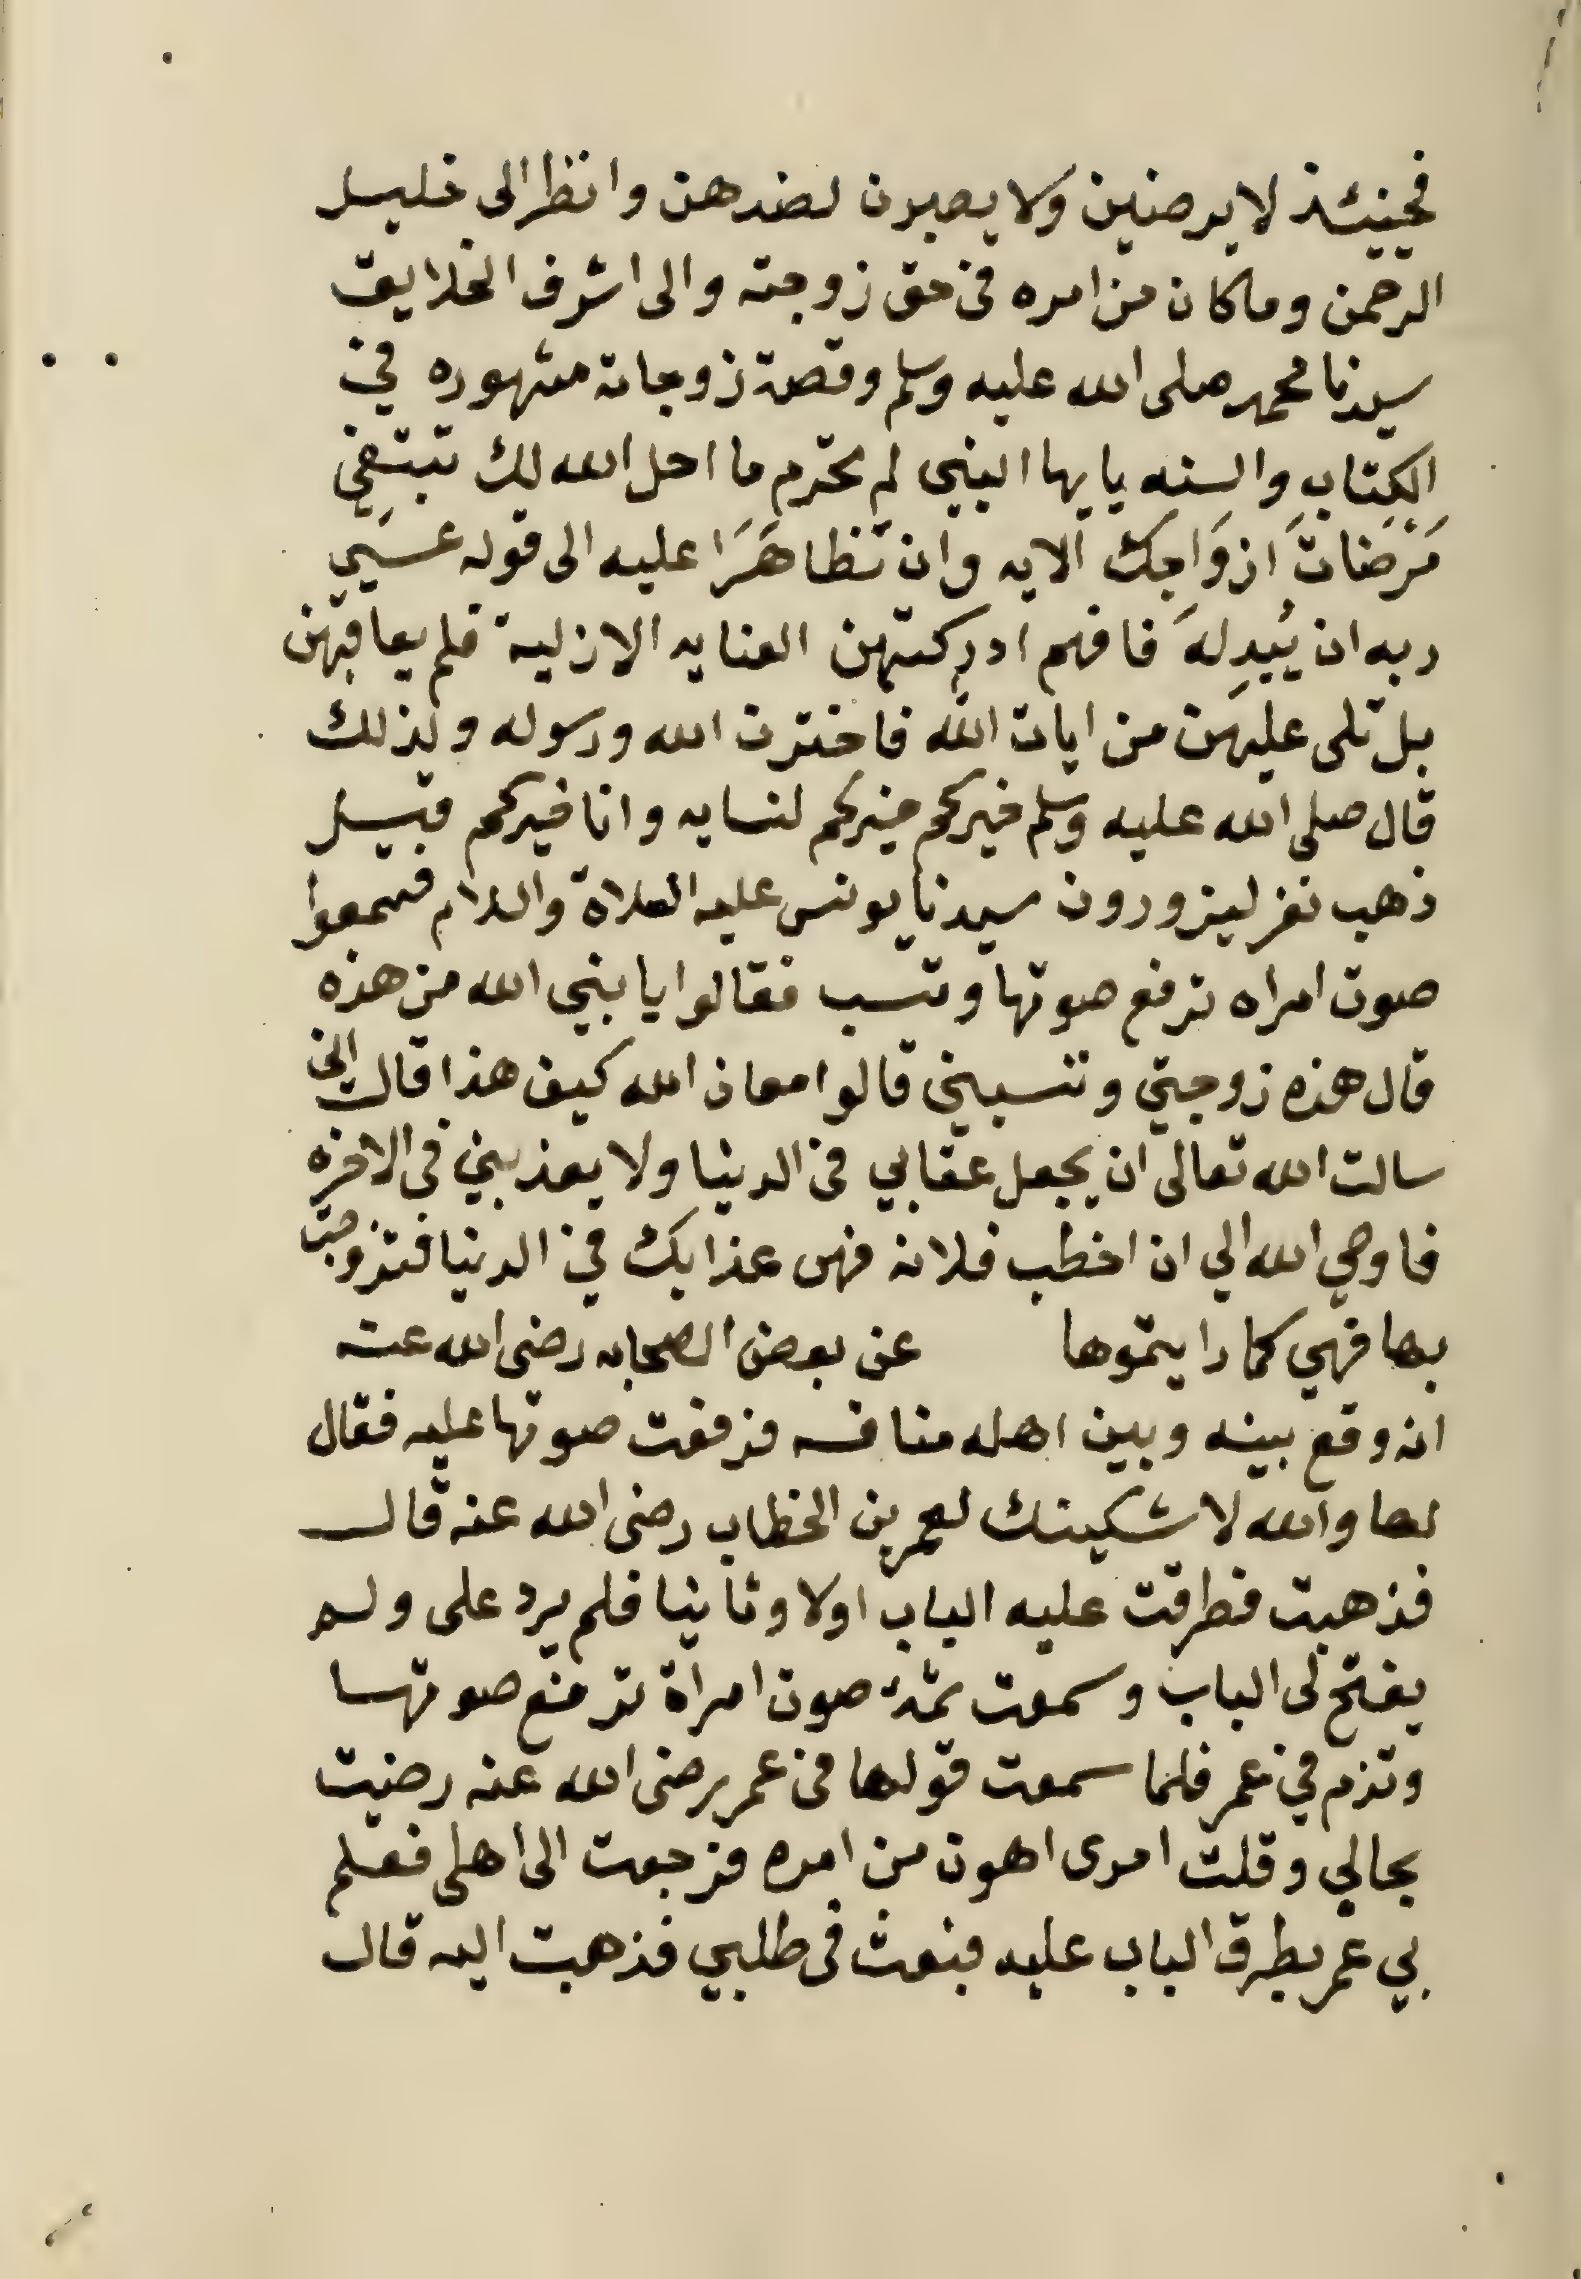 فحينئذ لا يرضين ولا يصبرن لضدهن وانظر الى خليل
الرحمن وما كان من امره فى حق زوجته والى اشرف الخلايق
سيدنا محمد صلى الله عليه وسلم وقصة زوجاته مشهوره في
الكِتَابِ والسنه يايها النبي لم تحرّم ما احل الله لك تبتغِي
مَرْضَاتَ اَزوَاجِكَ الايه وان تَظاهَرَا عليه الى قوله عسَي
ربه ان يُبدِلهَ فافهم ادركتهن العنايه الازلية فلم يعاقبهن
بل تلى عليهن من ايات الله فاخترن الله ورسوله ولذلك
قال صلى الله عليه وسلم خيركم خيركم لنسايه وانا خيركم قيل
ذهب نفر ليزورون سيدنا يونس عليه الصلاة والسلام فسمعوا
صوت امراه ترفع صوتها وتسب فقالوا يا نبي الله من هذه
قال هذه زوجتي وتسبني قالوا معاذ الله كيف هذا قال انى
سالت الله تعالى ان يجعل عقابي فى الدنيا ولا يعذبني فى الاخره
فاوحي الله الي ان اخطب فلانه فهى عذابك في الدنيا فتزوجت
بها فهي كما رايتموها عن بعض الصحابه رضى الله عنه
انه وقع بينه وبين اهله منافسه فرفعت صوتها عليه فقال
لها والله لاشكينك لعمر بن الخطاب رضى الله عنه قال
فذهبت فطرقت عليه الباب اولا وثانيا فلم يرد على ولم
يفتح لى الباب وسمعت ثمة صوت امراة ترفع صوتها
وتذم في عمر فلما سمعت قولها فى عمر رضى الله عنه رضيت
بحالي وقلت امرى اهون من امره فرجعت الى اهلى فعلم
بي عمر بطرق الباب عليه فبعث فى طلبي فذهبت اليه قال